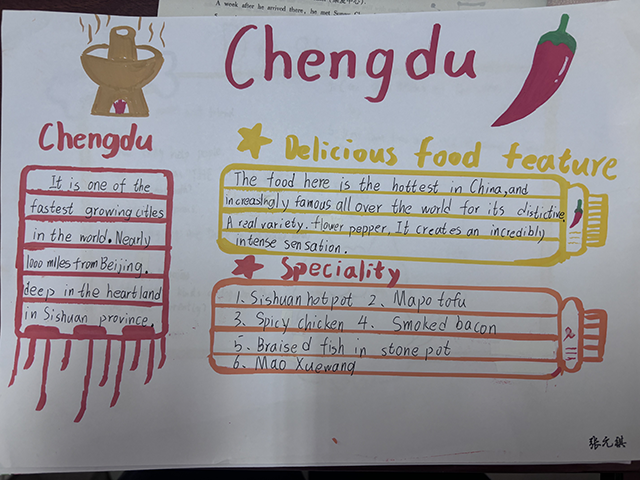 A week after he arrived there, he met
Chengdu
Chengdu
It is one of the
fastest growing cities
in the world. Nearly
1000 miles from Beijing.
deep in the heartland
in Sishuan province.
Delicious food feature
The food here is the hottest in China, and
increaslngly famous all over the world for its distictive.
A real variety. flower pepper. It creates an incredibly
intense sensation.
Speciality
1、Sishuan hot pot 2、Mapo tofu
3、Spicy chicken 4、Smoked bacon
5、Braised fish in stone pot
6、Mao Xuewang
2
张允祺